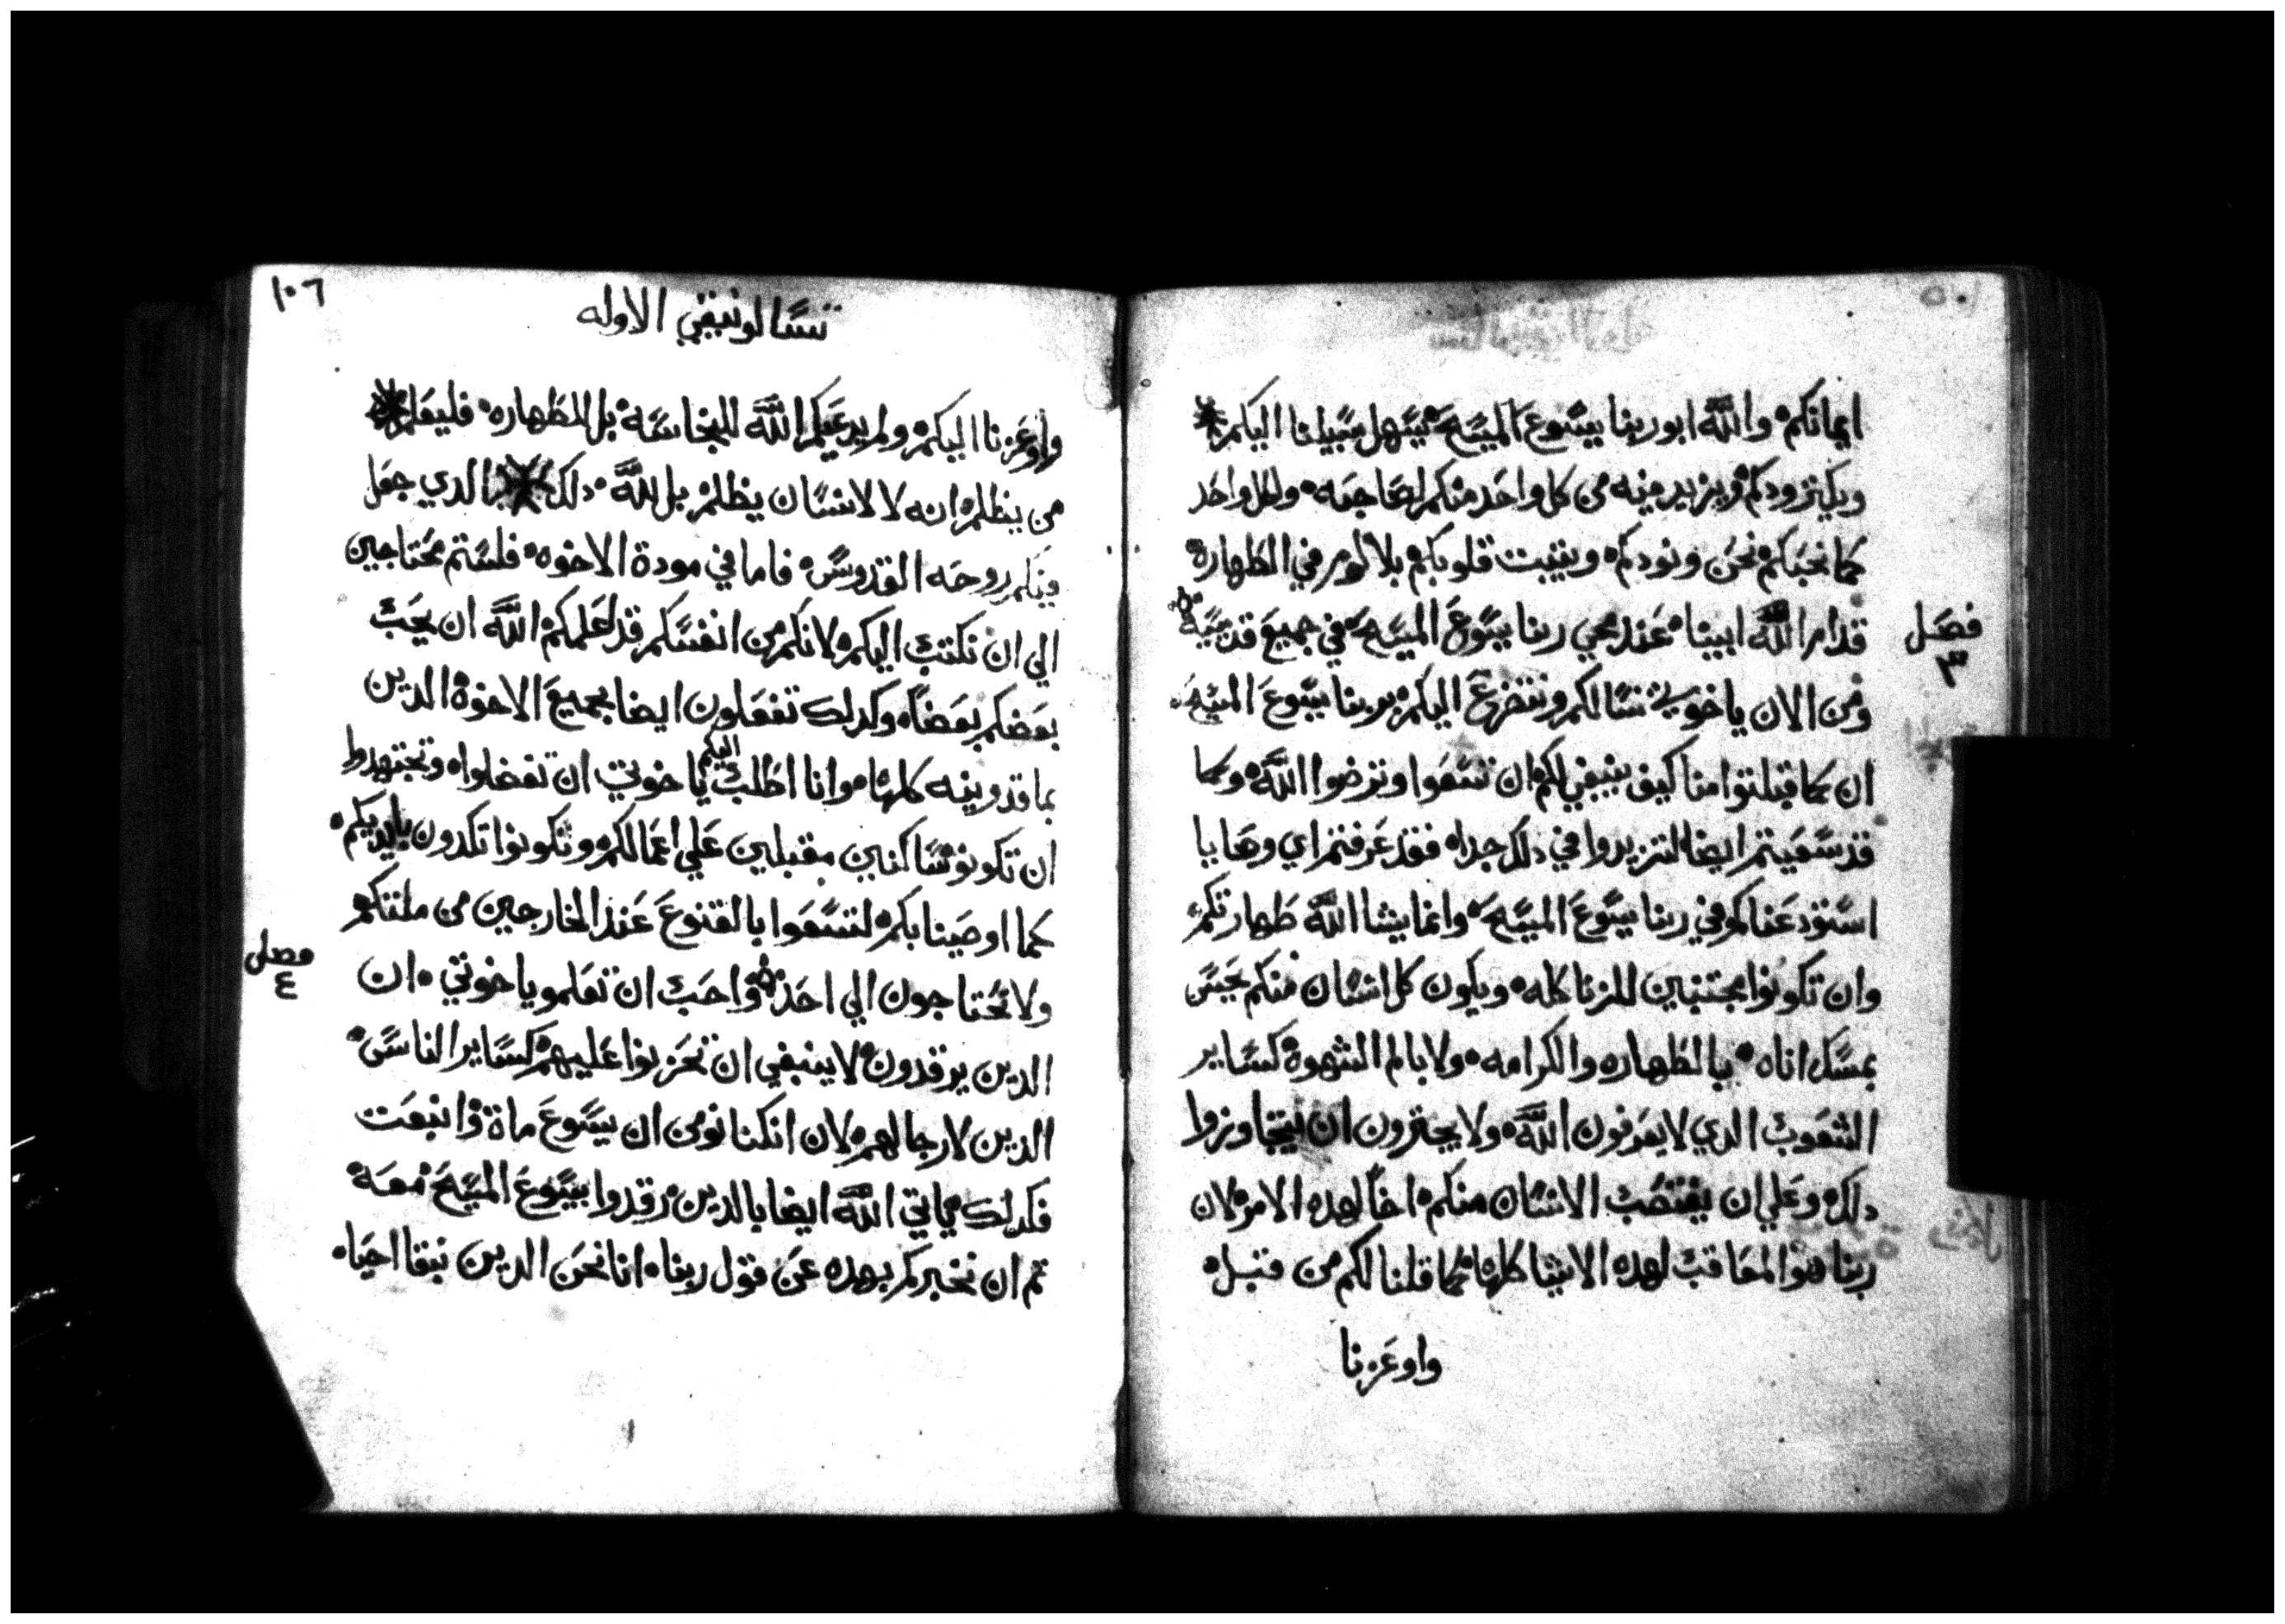 ايمانكم والله ابو ربنا يسوع المسيح يسهل سبيلنا اليكم
ويكتر ودكم ويزيد فيه من كل واحد منكم لصاحبه ولكل واحد
كما نحبكم نحن ونودكم ويثبت قلوبكم بلا لوم في الطهارة
قدام الله ابينا عند مجي ربنا يسوع المسيح في جميع قديسيه
فصل
٣
ومن الان ياخوتي نسالكم ونتضرع اليكم بربنا يسوع المسيح
ان كما قبلتوا منا كيف ينبغي لكم ان تسعوا وترضوا الله وكما
قد سعيتم ايضا لتزيدوا في دلك جدا فقد عرفتم اي وصايا
استودعناكم في ربنا يسوع المسيح وانما يشا الله طهارتكم
وان تكونوا مجتنبين للزنا كله ويكون كل انسان منكم يحسن
يمسك اناه بالطهاره والكرامه ولا بالم الشهوة كساير
الشعوب الدي لا يعرفون الله ولا يجترون ان يتجاوزوا
دلك وعلي ان يغتصب الانسان منكم اخاً لهده الامر لان
ربنا هو المعاقب لهده الاشيا كلها كما قلنا لكم من قبل
واوعزنا
١٠٦
تسالونيقي الاوله
واوعزنا اليكم ولم يدعيكم الله للنجاسة بل للطهاره فليعلم
من يظلم انه لا لانسان يظلم بل لله دلك الدي جعل
فيكم روحه القدوس فاما في مودة الاخوه فلستم محتاجين
الي ان نكتب اليكم لانكم من انفسكم قد لعلمكم الله ان يحب
بعضكم بعضاً وكدلك تفعلون ايضا بجميع الاخوة الدين
بماقدونيه كلها وانا اطلب اليكم ياخوتي ان تفضلوا وتجتهدوا
ان تكونو ساكنين مقبلين علي اعمالكم وتكونوا تكدون بايديكم
كما اوصينا بكم لتسعوا بالقنوع عند الخارجين من ملتكم
ولا تحتاجون الي احد واحب ان تعلمو ياخوتي ان
فصل
٤
الدين يرقدون لا ينبغي ان تحزنوا عليهم كساير الناس
الدين لا رجا لهم لان ان كنا نومن ان يسوع مات وانبعت
فكدلك ياتي الله ايضا بالدين رقدوا بيسوع المسيح معه
تم ان نخبركم بهده عن قول ربنا انا نحن الدين نبقا احيا